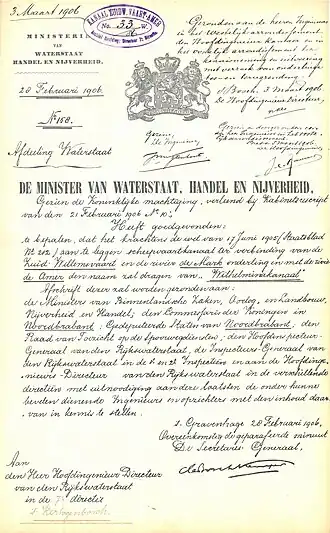 3 Maart 1906
MINISTERIE
VAN
WATERSTAAT
HANDEL EN NIJVERHEID.
28 Februari 1906.
No 158.
Afdeeling Waterstaat
KANAAL ZUIDW. VAART-AMER
No. 33
's Bosch, 3 Maart 1906
De Hoofdingenieur Directeur,
Gezien,
De Ingenieur
DE MINISTER VAN WATERSTAAT, HANDEL EN NIJVERHEID,
Gezien de Koninklijke machtiging, verleend bij Kabinetsrescript
van den 21 Februari 1906 No 10;
Heeft goedgevonden:
te bepalen, dat het krachtens de wet van 17 Juni 1905 (Staatsblad
No 212) aan te leggen scheepvaartkanaal ter verbinding van de
Zuid Willemsvaart en de rivier de Mark onderling en met de rivier
de Amer den naam zal dragen van „Wilhelminakanaal”
Afschrift dezer zal worden gezonden aan:
de Ministers van Binnenlandsche Zaken, Oorlog, en Landbouw,
Nijverheid en Handel; den Commissaris der Koningin in
Noordbrabant; Gedeputeerde Staten van Noordbrabant; den
Raad van Toezicht op de Spoorwegdiensten; den Hoofdinspecteur-
Generaal van den Rijkswaterstaat, de Inspecteurs-Generaal van
den Rijkswaterstaat in de 1e en 2e Inspectiën en aan de Hoofdinge-
nieurs-Directeur van den Rijkswaterstaat in de verschillende
directiën met uitnoodiging aan de laatsten de onder hunne
bevelen dienende Ingenieurs en opzichters met den inhoud daar-
van in kennis te stellen.
's Gravenhage 28 Februari 1906,
Overeenkomstig de geparafeerde minuut
De Secretaris Generaal,
Aan
den Heer Hoofdingenieur Directeur
van den Rijkswaterstaat
in de 7e directie
's Hertogenbosch.